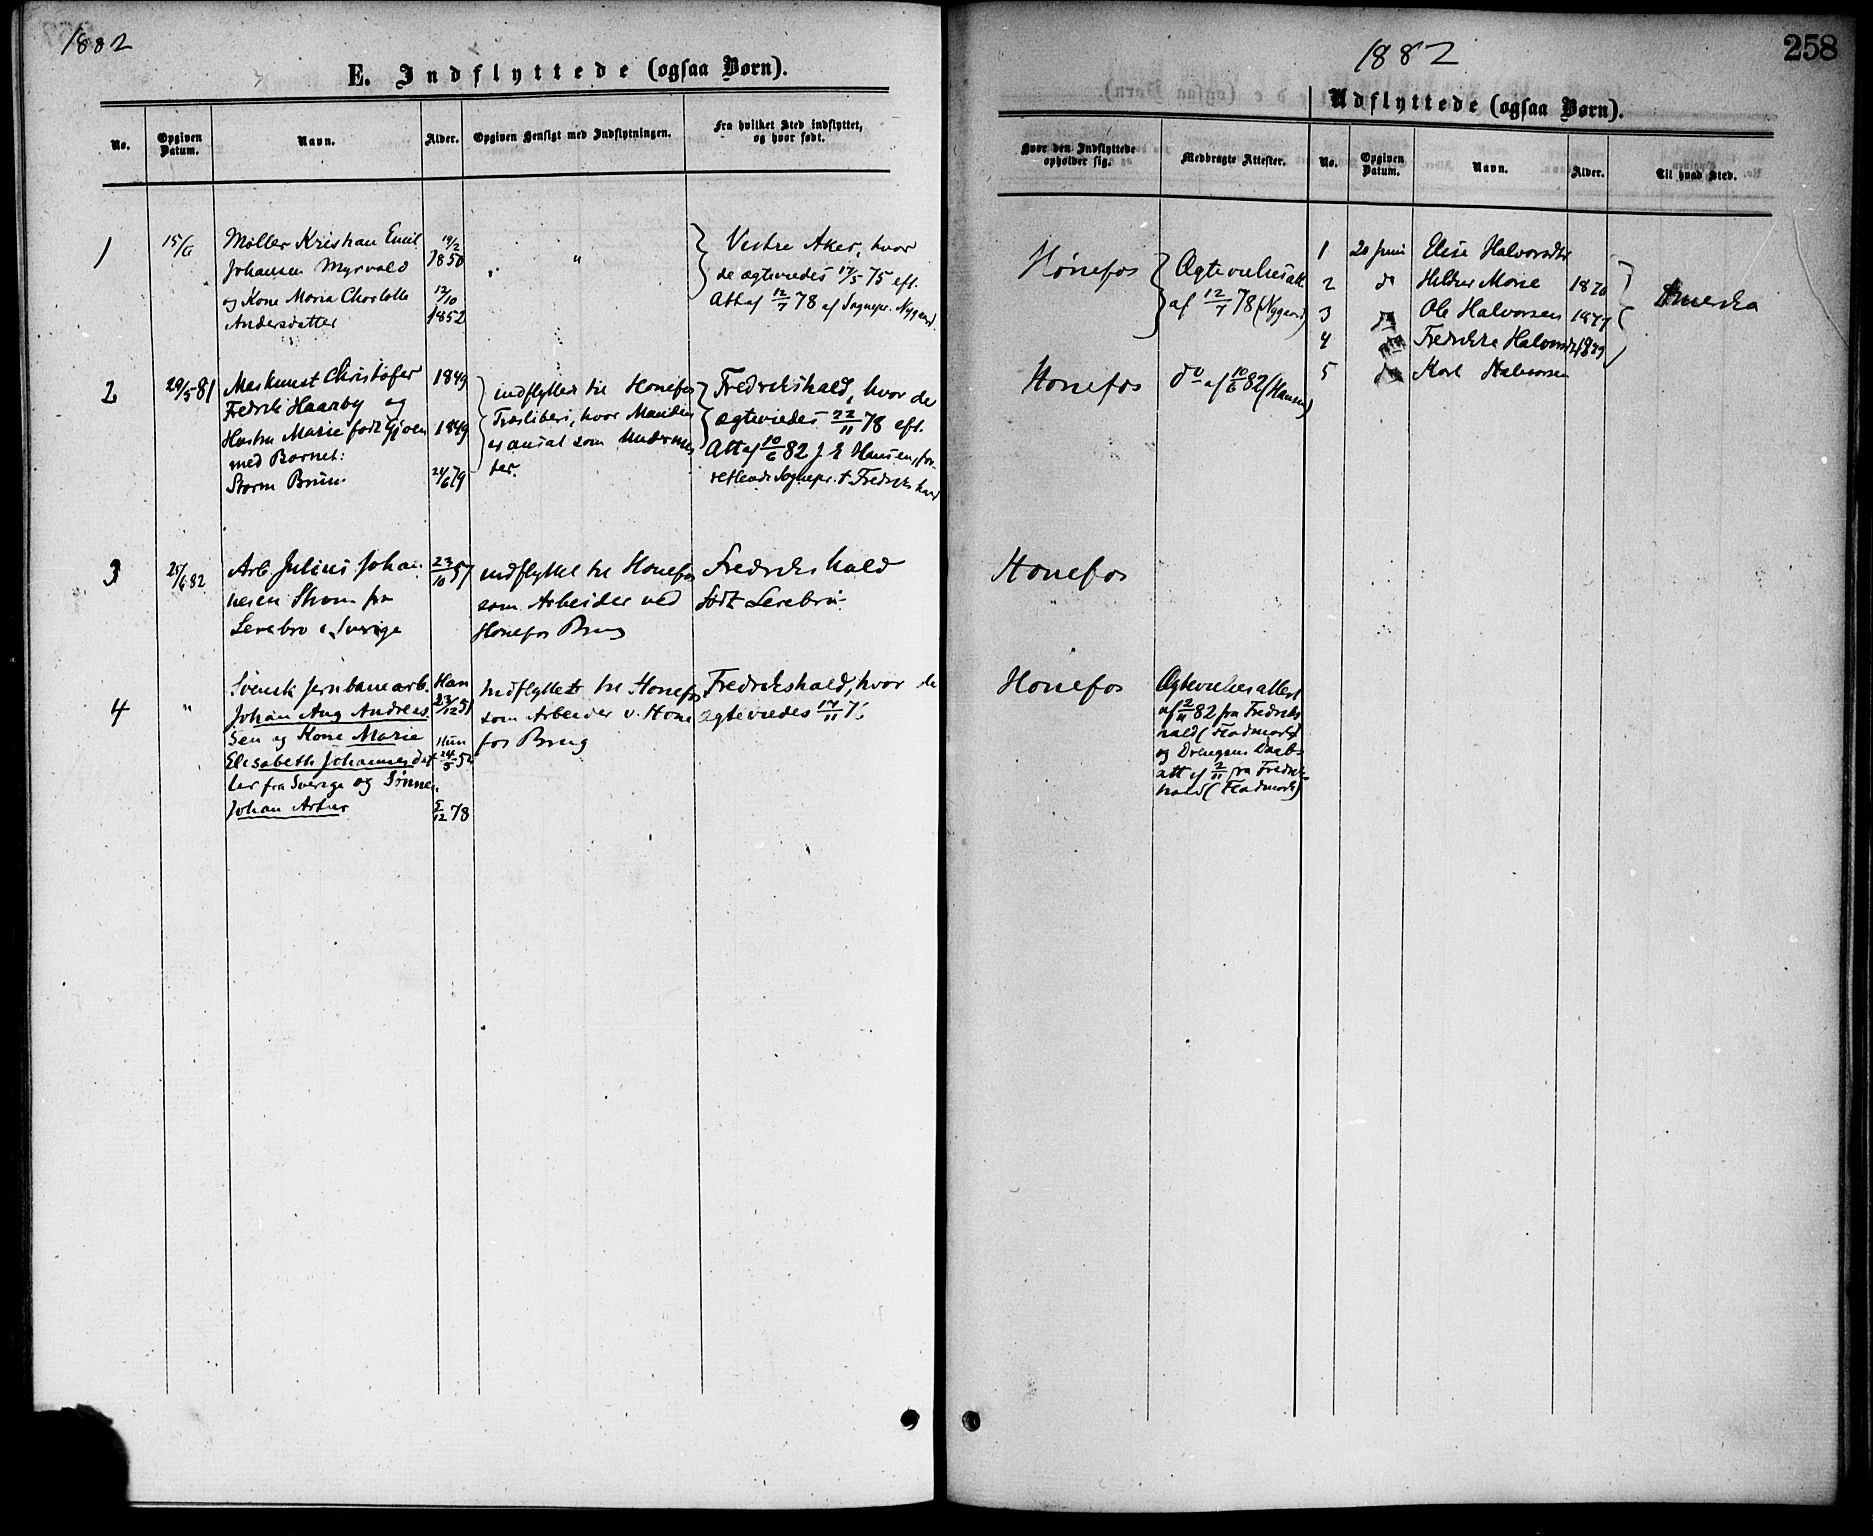 1882
E. Indflyttede (ogsaa Børn).
No.
Opgiven Datum.
Navn.
Alder.
Opgiven Hensigt med Indflytningen.
Fra hvilket Sted indflyttet, og hvor født.
1
15/6
Møller Kristian Emil
Johansen Myrvold
og Kone Maria Charlotte
Andersdatter
19/2
1850
12/10
1852
" "
Vestre Aker, hvor
de ægteviedes 17/5 75 efl.
Att af 12/7 78 af Sognepr. Nygaard
2
29/5 81
Maskinist Christofer
Fedrik Haarby og
Hustru Marie født Gjøen
med Barnet:
Storm Brun
1849
1849
24/6 79
indflyttet til Hønefos
Træsliberi, hvor Manden
er ansat som
ter.
Fredrikshald, hvor de
ægteviedes 22/11 78 efl.
Att af 10/6 82 J E Hansen,
Sognepr. t. Fredrikshald
3
25/6 82
Arb Julius Johan
nesen Strøm fra
i Sverige
23/10 57
indflyttet til Hønefos
som Arbeider ved
Hønefos Brug
Fredrikshald
født
4
"
Svensk Jernbanearb.
Johan Aug Andreas
sen og Kone Marie
Elisabeth Johannesdat
ter fra Sverige og Sønnen
Johan Artur
Han
23/12 51
Hun
24/5 52
5/12 78
Indflyttet til Hønefos
som Arbeider v. Høne
fos Brug
Fredrikshald, hvor de
ægteviedes 17/11
1882
258
Udflyttede (ogsaa Børn).
Hvor den Indflyttede opholder sig.
Medbragte Attester.
No.
Opgiven Datum.
Navn.
Alder.
Til hvad Sted.
Hønefos
Ægtevielsesatt.
af 12/7 78 (Nygaard)
Hønefos
do af 10/6 82 (Hansen)
Hønefos
Hønefos
Ægtevielsesattest
af 2/11 82 fra Fredriks
hald (Fladmark)
og Drengens Daabs
att af 2/11 fra Fredriks
hald (Fladmark)
1 20 Juni Elise Halvorsdtr
2 do Marie 1870
3 do Ole Halvorsen 1877
4 Fredrikke Halvorsdtr 1879
5 do Karl Halvorsen
Amerika